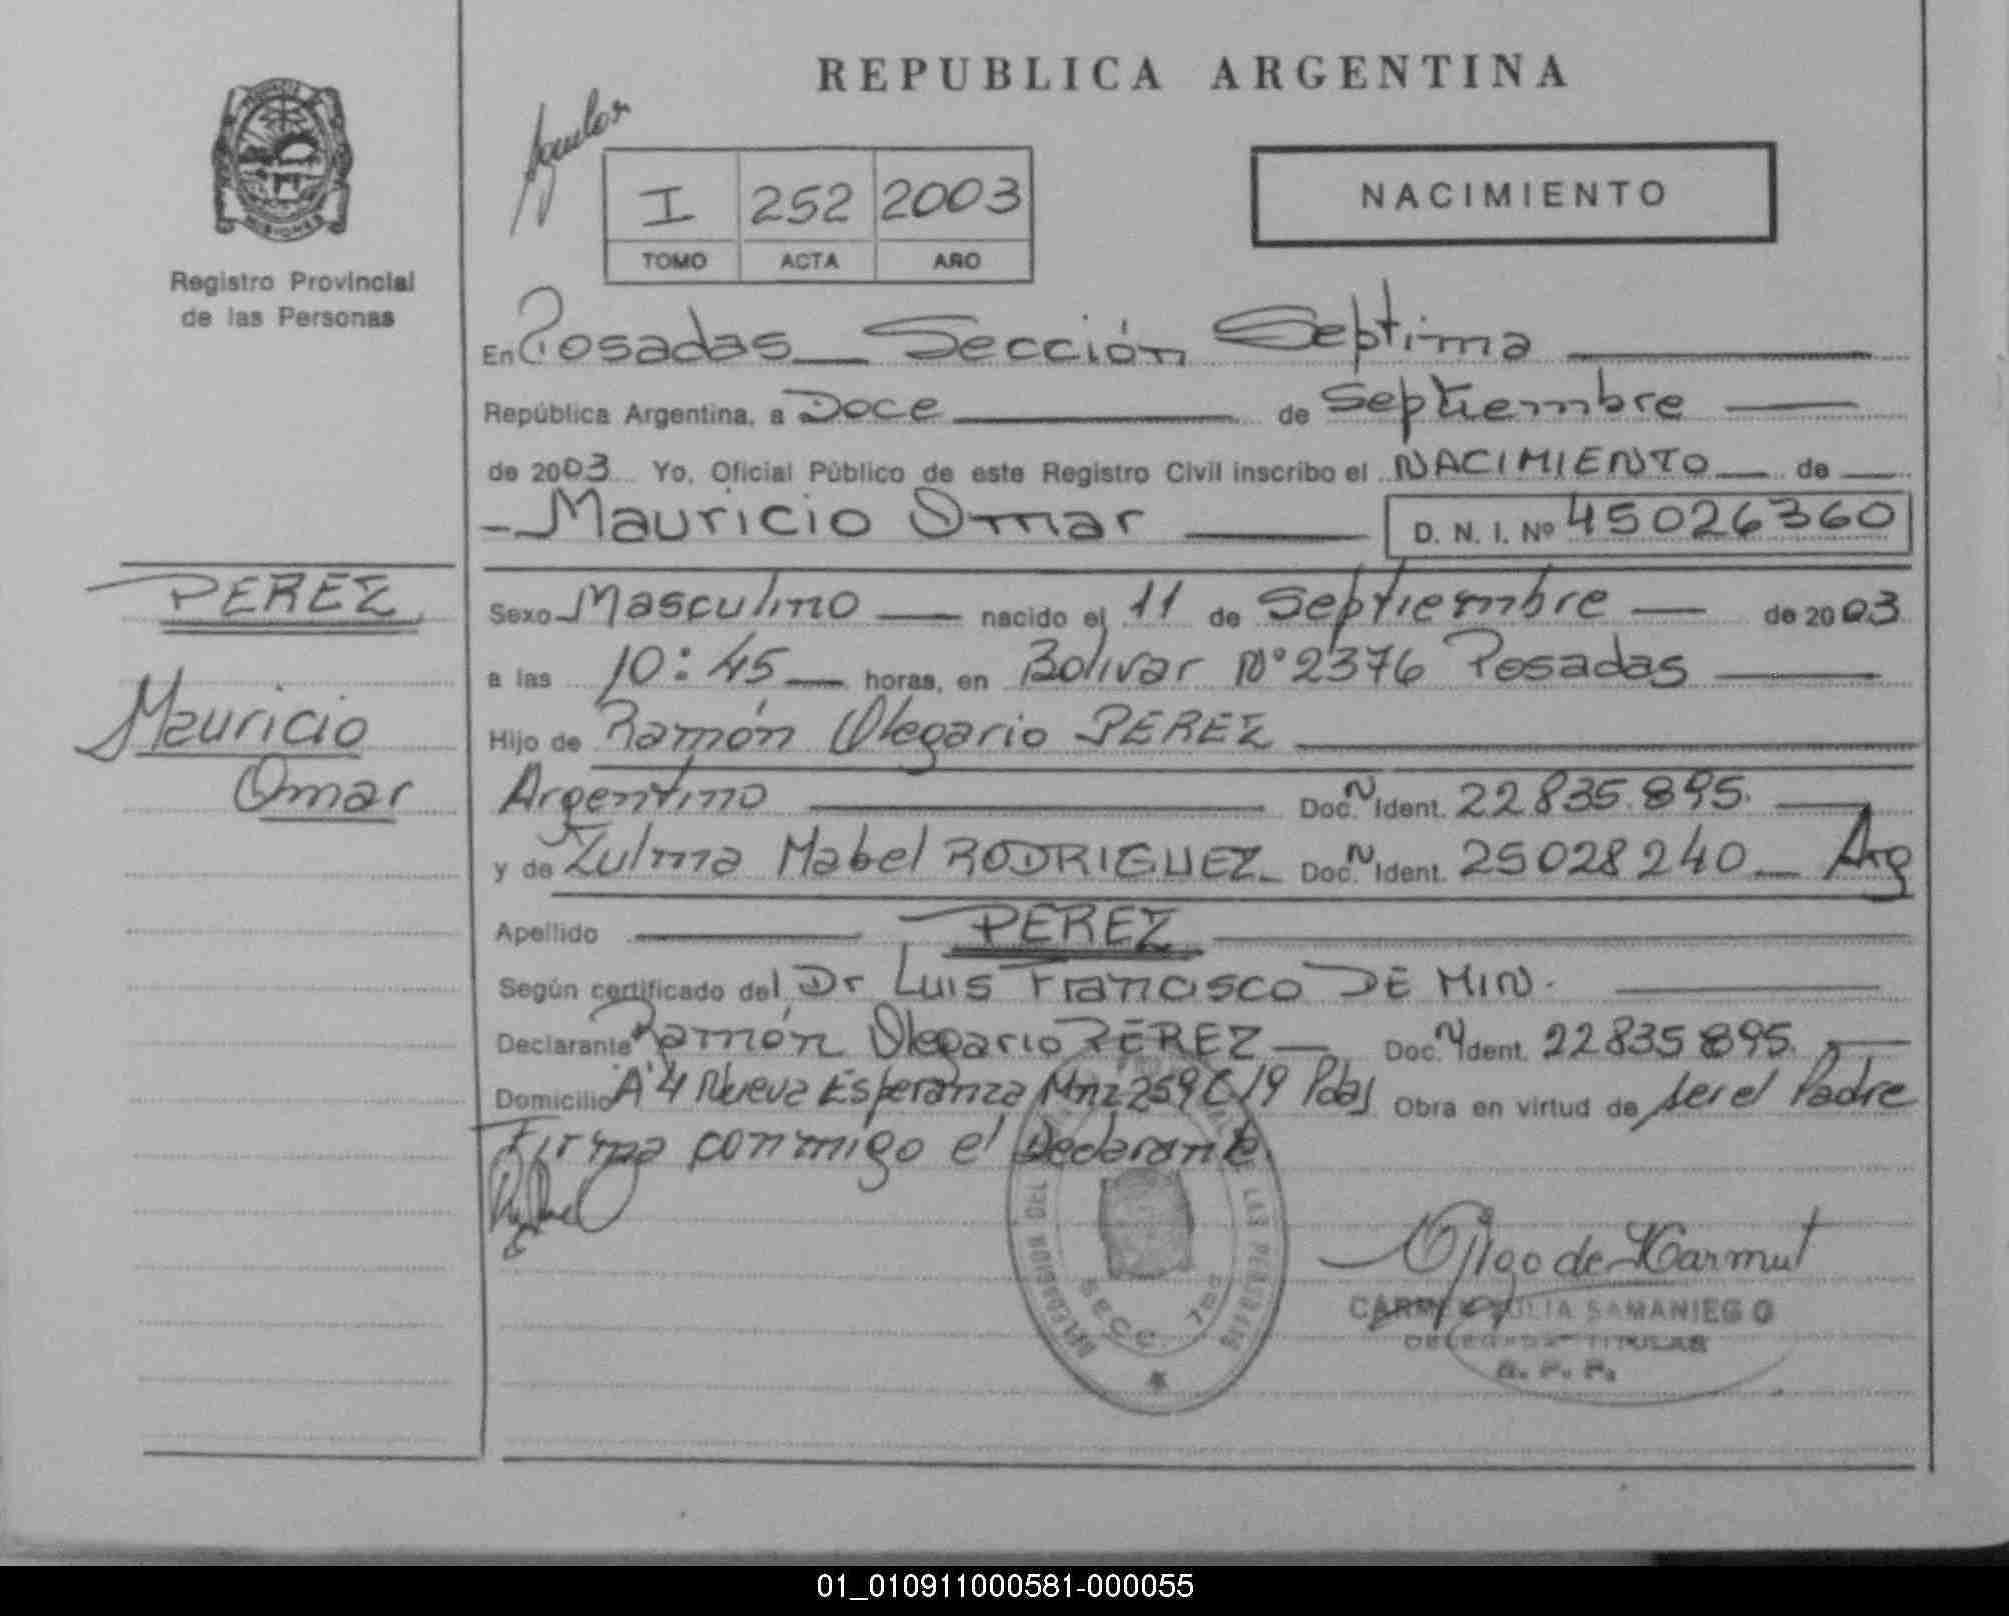 REPUBLICA ARGENTINA
Registro Provincial
de las Personas
I 252 2003
TOMO ACTA AÑO
NACIMIENTO
En Posadas Sección Septima
República Argentina, a Doce de Septiembre
de 2003 Yo, Oficial Público de este Registro Civil inscribo el NACIMIENTO de
Mauricio Omar D. N. I. Nº 45026360
PEREZ
Mauricio
Omar
Sexo Masculino nacido el 11 de Septiembre de 2003
a las 10:45 horas, en Bolivar Nº 2376 Posadas
Hijo de Ramón Olegario PEREZ
Argentino Doc. N Ident. 22.835.895.
y de Zulma Mabel RODRIGUEZ Doc. N Ident. 25028240 Arg
Apellido PEREZ
Según certificado del Dr Luis Francisco DE MIN.
Declarante Ramón Olegario PÉREZ Doc. N Ident. 22835895.
Domicilio A'4 Nueva Esperanza Mnz 259 C/9 Pdas Obra en virtud de ser el Padre
Firma conmigo el Declarante.
DELEGACION DEL
DE LAS PERSONAS
SECC. 7ma
CARMEN JULIA SAMANIEGO
DELEGADA TITULAR
R. P. P.
01_010911000581-000055